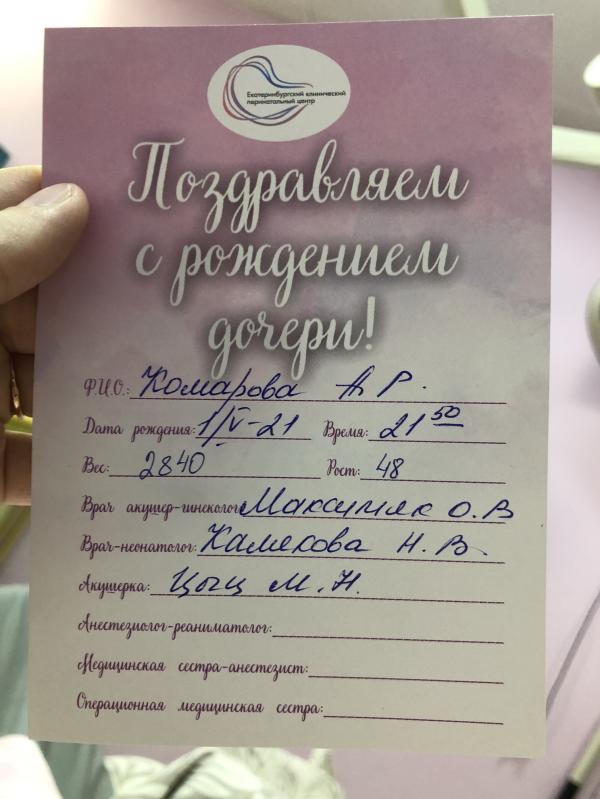 Екатеринбургский клинический
перинатальный центр
Поздравляем
с рождением
дочери!
Ф.И.О.: Комарова А Р.
Дата рождения: 1/IV-21 Время: 21 50
Вес: 2840 Рост: 48
Врач акушер-гинеколог: Максимяк О.В
Врач-неонатолог: Камекова Н. В.
Акушерка: Цыц М.Н.
Анестезиолог-реаниматолог:
Медицинская сестра-анестезист:
Операционная медицинская сестра: